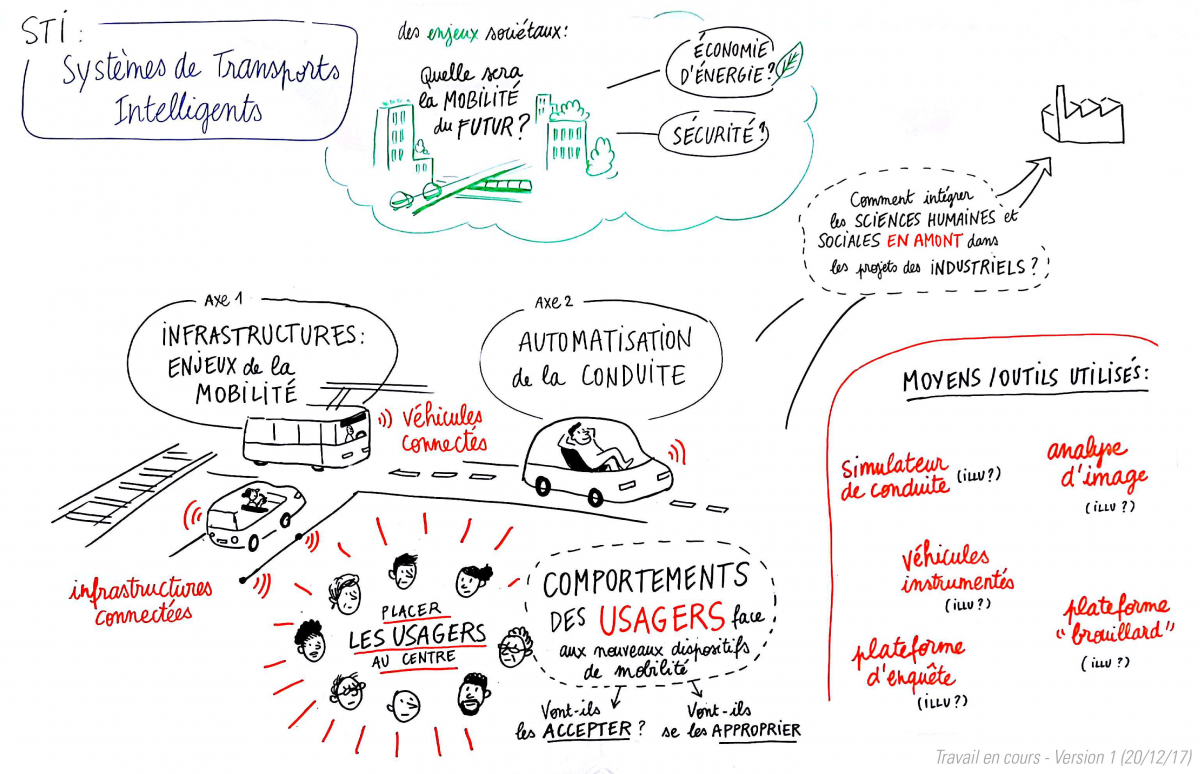 STI :
Systèmes de Transports
Intelligents
des enjeux sociétaux :
Quelle sera
la MOBILITÉ
du FUTUR ?
ÉCONOMIE
D'ÉNERGIE ?
SÉCURITÉ ?
Comment intégrer
les SCIENCES HUMAINES et
SOCIALES EN AMONT dans
les projets des INDUSTRIELS ?
AXE 1
INFRASTRUCTURES :
ENJEUX de la
MOBILITÉ
AXE 2
AUTOMATISATION
de la CONDUITE
véhicules
connectés
infrastructures
connectées
PLACER
LES USAGERS
AU CENTRE
COMPORTEMENTS
DES USAGERS face
aux nouveaux dispositifs
de mobilité
Vont-ils
les ACCEPTER ?
Vont-ils
se les APPROPRIER
MOYENS / OUTILS UTILISÉS :
simulateur
de conduite (illu ?)
analyse
d'image
(illu ?)
véhicules
instrumentés
(illu ?)
plateforme
"brouillard"
(illu ?)
plateforme
d'enquête
(illu ?)
Travail en cours - Version 1 (20/12/17)